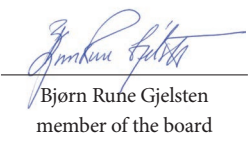 Bjørn Rune Gjelsten
member of the board